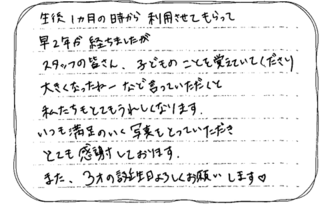 生後1ヵ月の時から利用させてもらって
早2年が経ちましたが
スタッフの皆さん、子どものことも覚えていてくださり
大きくなったねーなど言っていただくと
私たちもとてもうれしくなります。
いつも満足のいく写真をとっていただき
とても感謝しております。
また、3才の誕生日よろしくお願いします♡